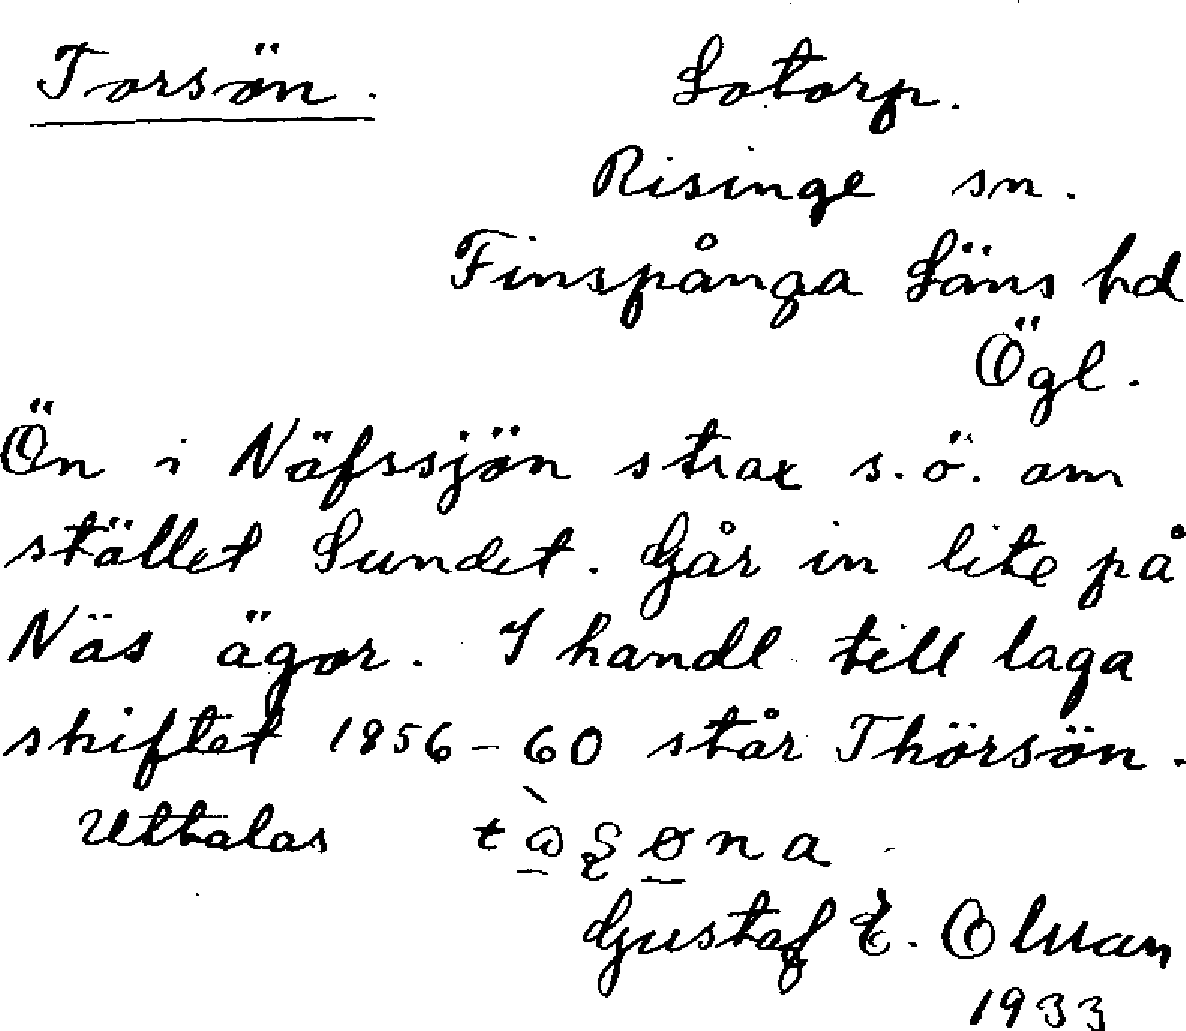 Torsön. Lotorp.
Risinge sn.
Finspånga Läns hd
Ögl.
Ön i Näfssjön strax s.ö. om
stället Sundet. Går in lite på
Näs ägor. I handl till laga
skiftet 1856-60 står Thörsön.
Uttalas
Gustaf E.
1933